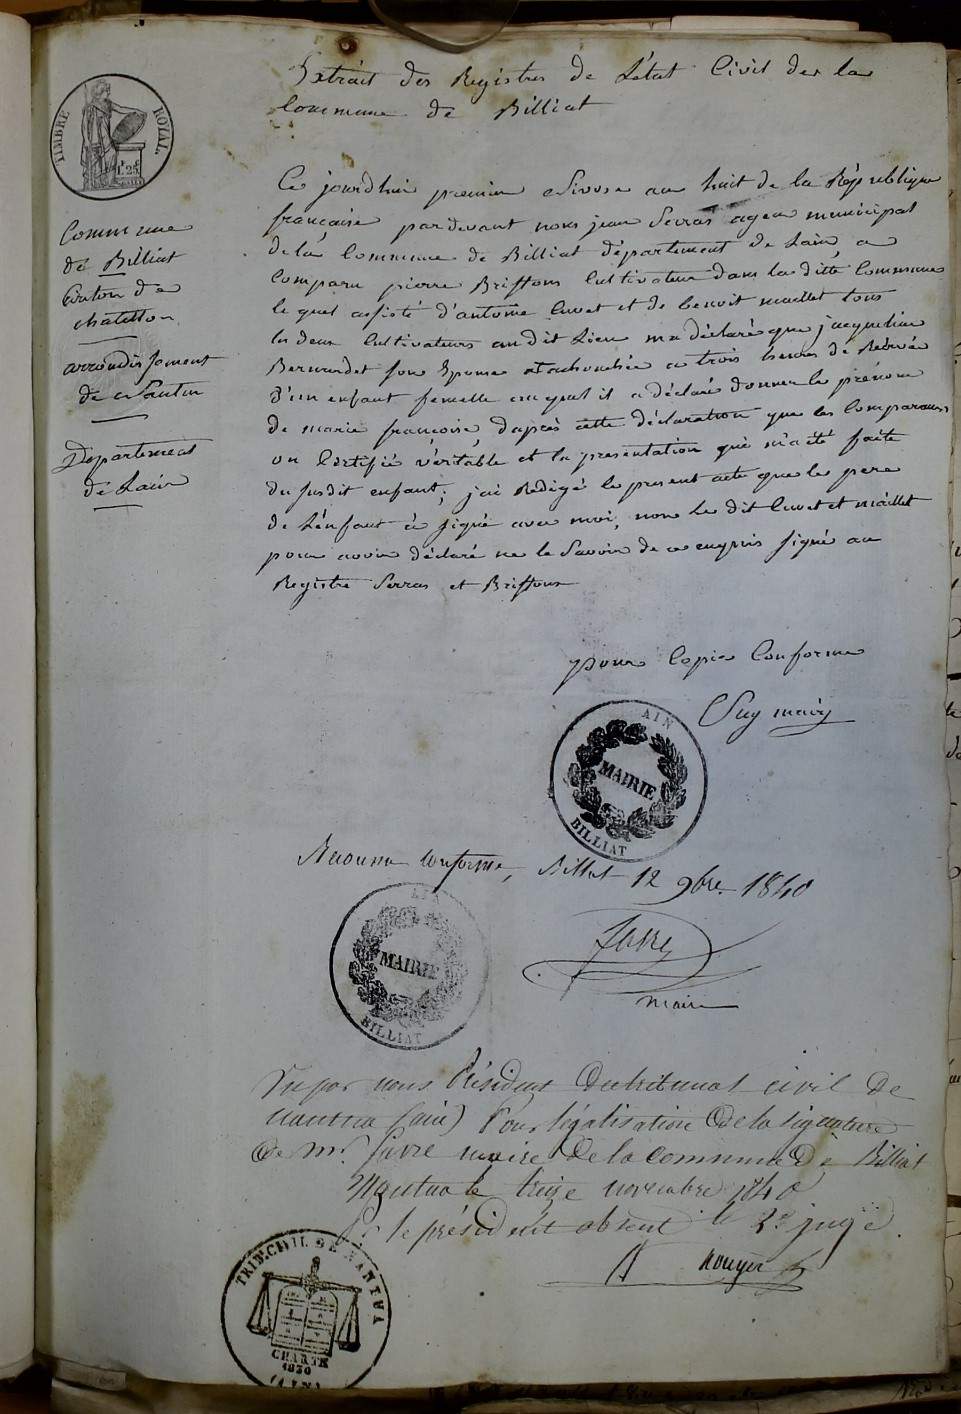 Extrait des Registres de L'état Civil de la
Commune de Billiat
TIMBRE ROYAL.
1F 25C
Commune
de Billiat
Canton de
chatillon
arrondissement
de Nantua
Departement
de Lain
Ce jourdhui premier Nivose an huit de la République
française pardevant nous jean Serras agen municipal
de la Commune de Billiat département de Lain, a
comparu pierre Briffons Cultivateur dans la ditte Commune
le quel assisté d'antoine Cuvet et de benoit maillet tous
les deux Cultivateurs au dit Lieu ma déclaré que jacqueline
Bernardet son Epouse atachouchée a trois heures de
d'un enfant femelle auquel il a déclaré donner le prénom
de marie françoise, dapres cette déclaration que les Comparans
on Certifié véritable et la presentation qui m'a été faite
du susdit enfant; jai Redigé le present acte que le pere
de L'enfant à signé avec moi, non Le dit Cuvet et maillet
pour avoir déclaré ne le Savoir de ce enquis signé au
Registre Serras et Briffons
pour Copie Conforme
Suy maire
AIN
MAIRIE
BILLIAT
Reconnu conforme, Billiat 12 9bre. 1840
AIN
MAIRIE
BILLIAT
favre
maire
Vu par nous Président du tribunal civil de
nantua (ain) Pour légalisation de la signature
de Mr. favre maire de la commune de Billiat
Nantua le treize novembre 1840
le président absent le 2e. juge
A Rouyer
TRIB. CIVIL DE NANTUA
CHARTE
1830
(AIN)